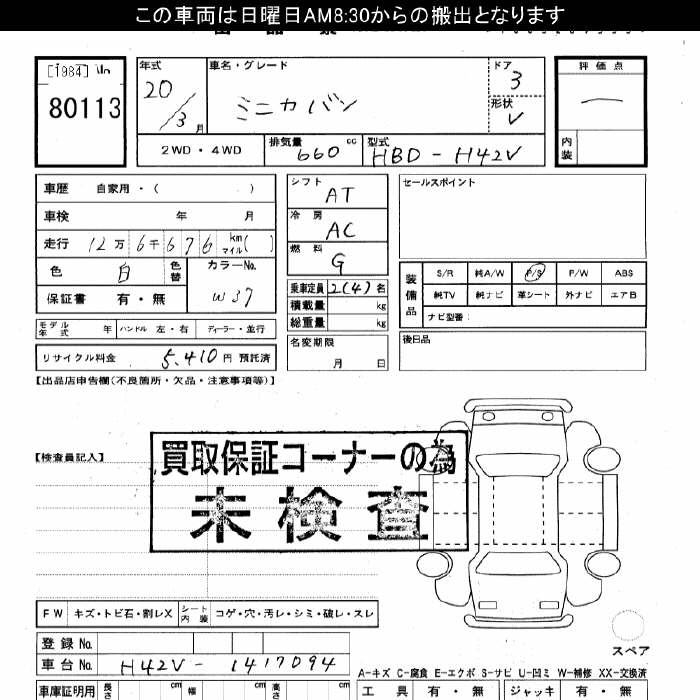 この車両は日曜日AM8:30からの搬出となります
[1984]
80113
年式 20/3月
車名・グレード
ミニカバン
ドア 3
形状 V
評価点
一
内装
2WD・4WD
排気量 660 cc
型式 HBD-H42V
車歴 自家用・( )
車検 年 月
走行 12万6千676 km マイル( )
色 白 色替
カラーNo. W37
保証書 有・無
シフト AT
冷房 AC
燃料 G
乗車定員 2(4)名
積載量 kg
総重量 kg
セールスポイント
装備品
S/R 純A/W P/S P/W ABS
純TV 純ナビ 革シート 外ナビ エアB
ナビ型番:
モデル年式 年 ハンドル 左・右 ディーラー・並行
名変期限 月 日
後日品
リサイクル料金 5,410円 預託済
【出品店申告欄(不良箇所・欠品・注意事項等)】
【検査員記入】
買取保証コーナーの為
未検査
FW キズ・トビ石・割レX
シート内装 コゲ・穴・汚レ・シミ・破レ・スレ
スペア
登録No.
車台No. H42V-1417094
A-キズ C-腐食 E-エクボ S-サビ U-凹ミ W-補修 XX-交換済
車庫証明用 長さ cm 幅 cm 高さ cm
工具 有・無 ジャッキ 有・無